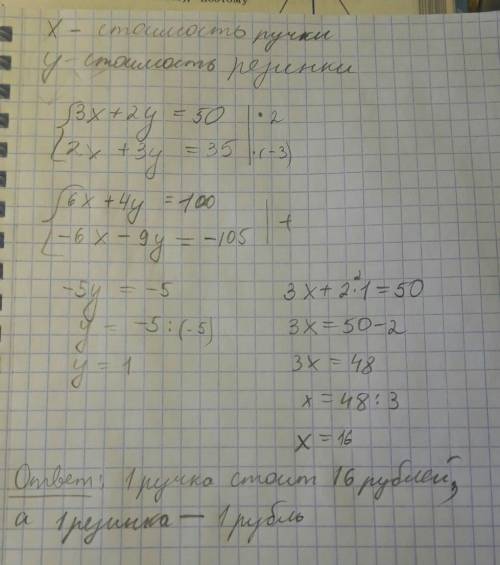 поэтому
x - стоимость ручки
y - стоимость резинки
{3x + 2y = 50 | · 2
{2x + 3y = 35 | · (-3)
{6x + 4y = 100
{-6x - 9y = -105 | +
-5y = -5
y = -5 : (-5)
y = 1
3x + 2 · 1 = 50
3x = 50 - 2
3x = 48
x = 48 : 3
x = 16
Ответ: 1 ручка стоит 16 рублей,
а 1 резинка — 1 рубль